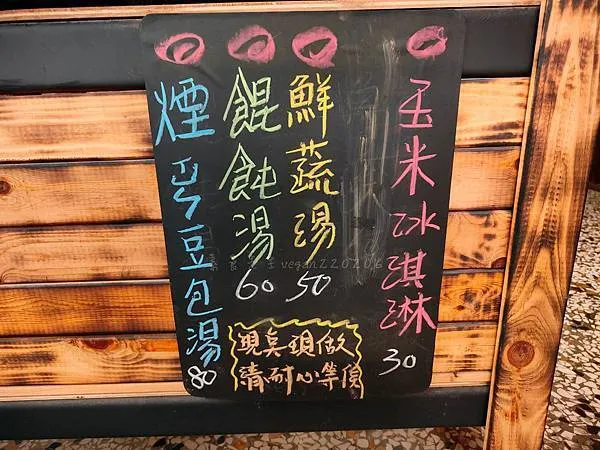 玉米冰淇淋
30
鮮蔬湯
50
餛飩湯
60
煙
豆包湯
80
現奌現做
請耐心等候
vegan220206